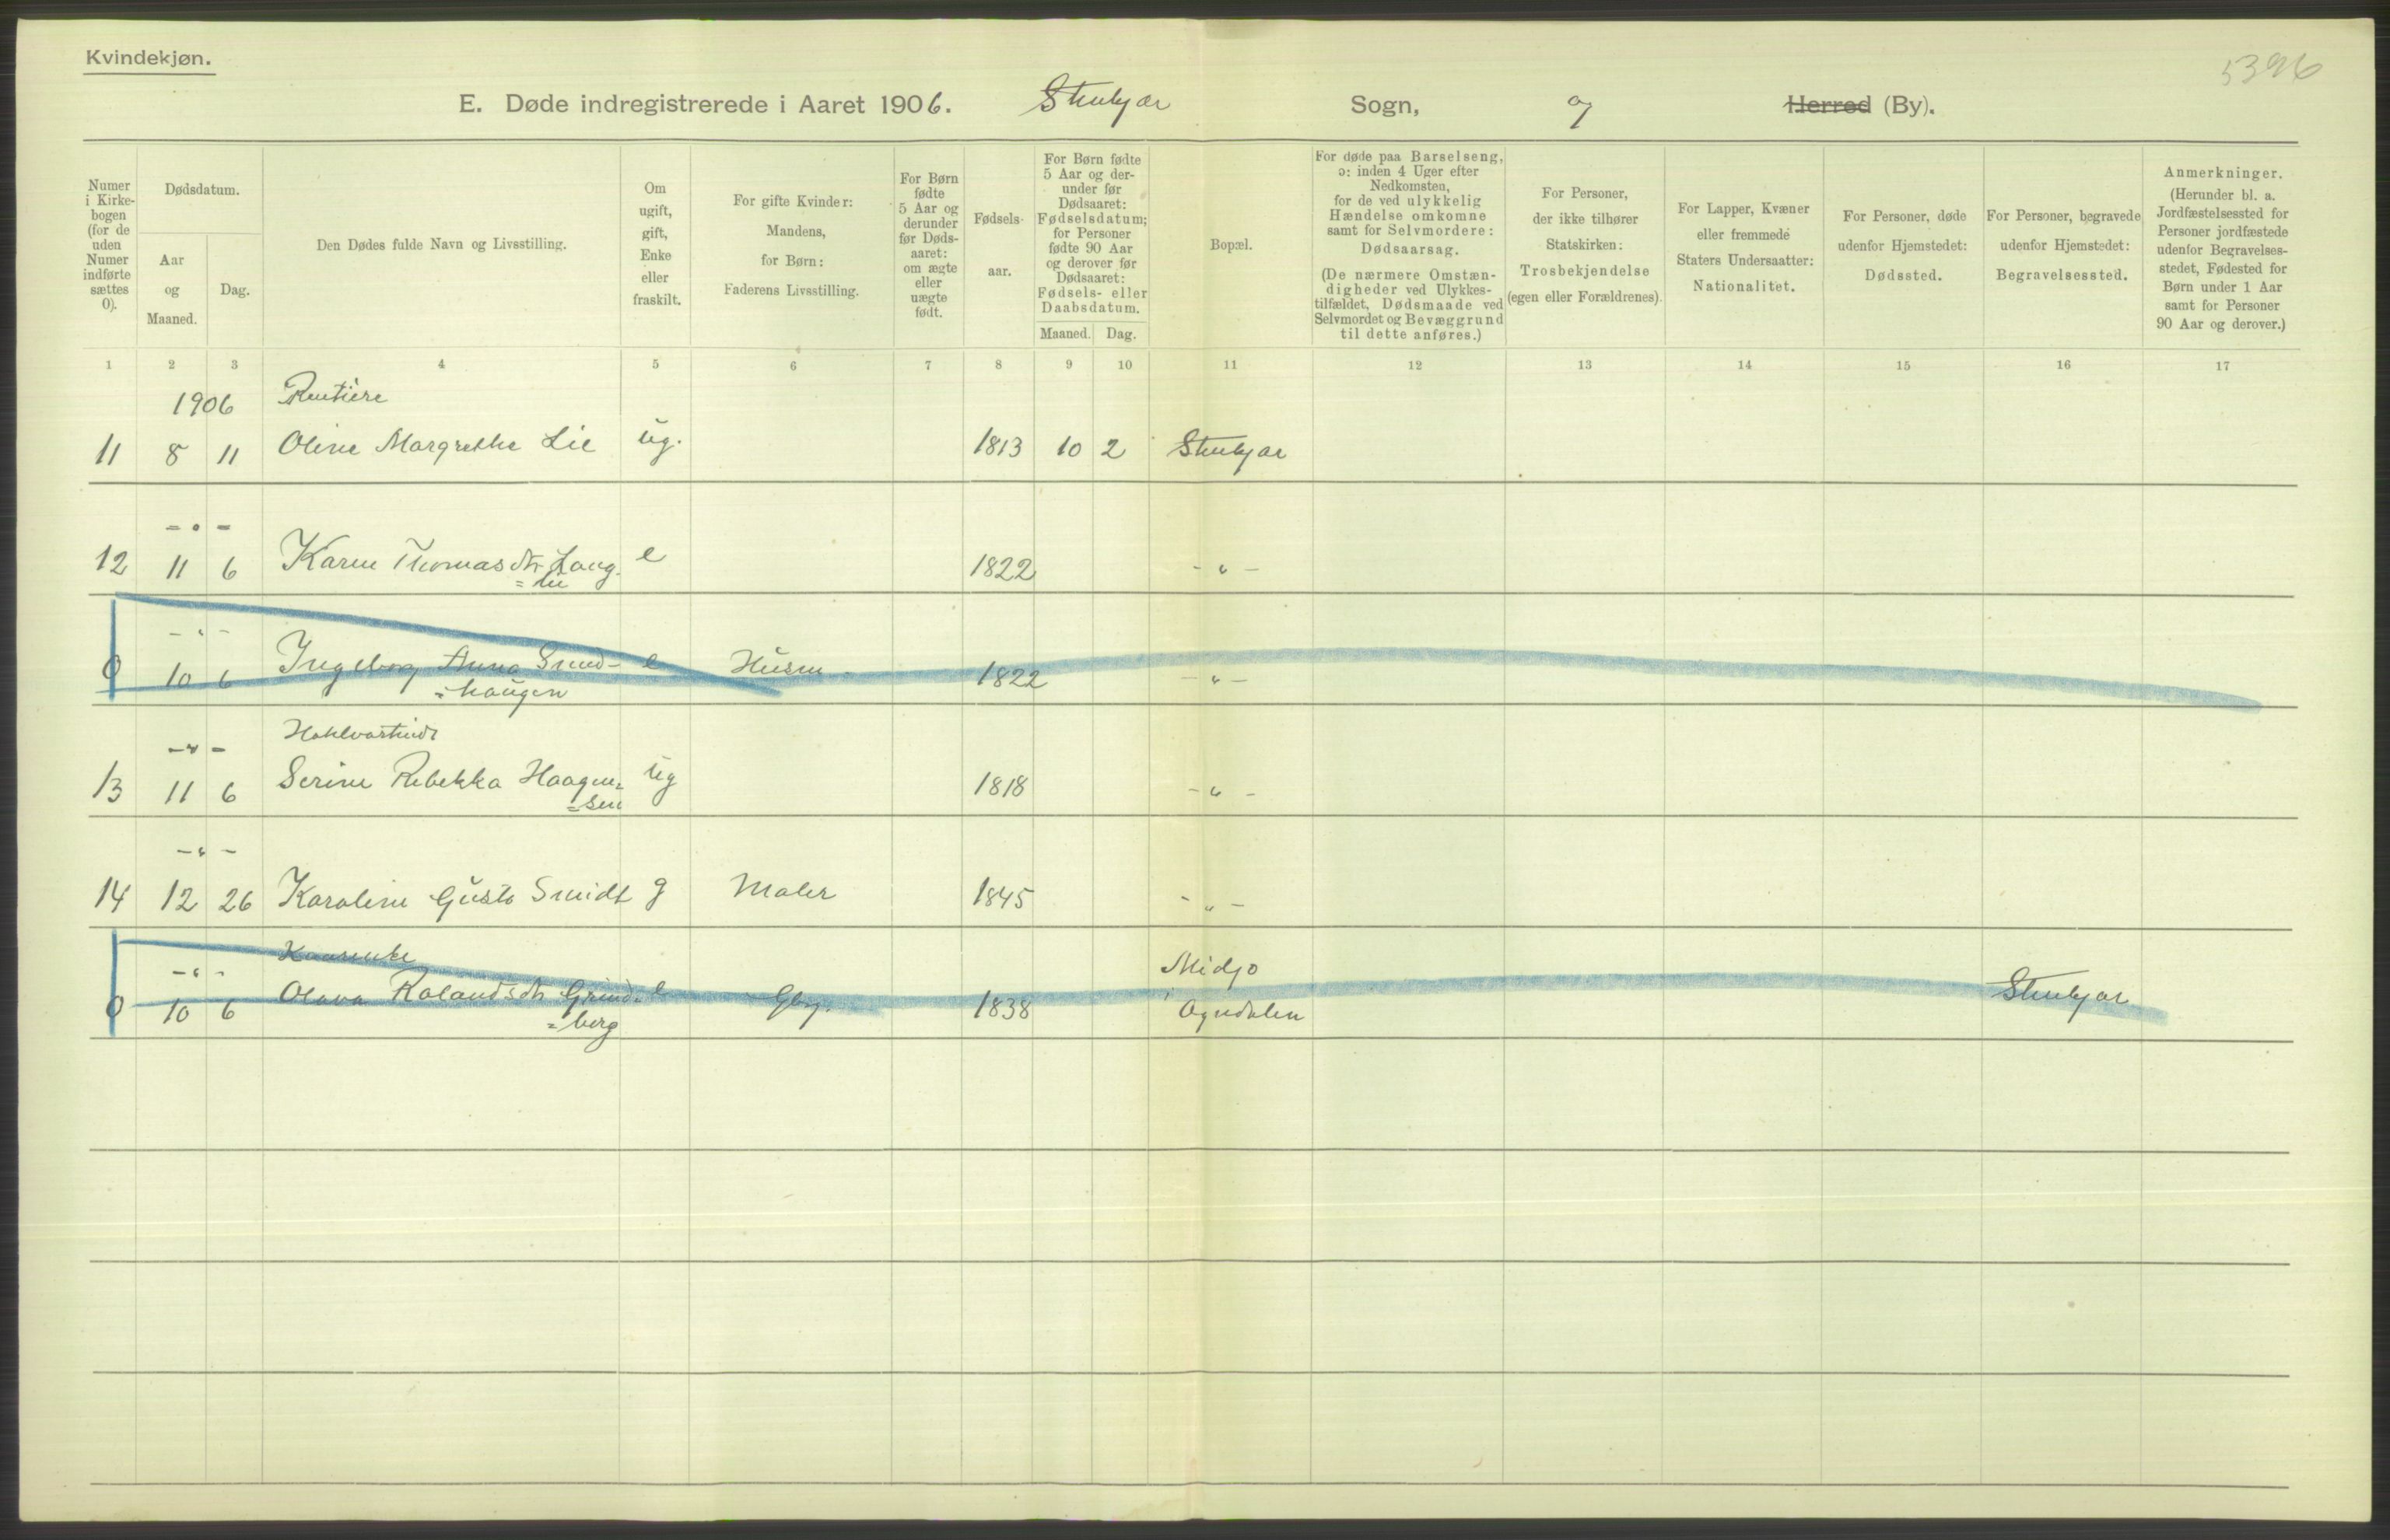 Kvindekjøn.
5396
E. Døde indregistrerede i Aaret 1906. Stenkjær Sogn, og Herred (By).
Numer i Kirke-bogen (for de uden Numer indførte sættes 0).
Dødsdatum.
Aar og Maaned.
Dag.
Den Dødes fulde Navn og Livsstilling.
Om ugift, gift, Enke eller fraskilt.
For gifte Kvinder: Mandens, for Børn: Faderens Livsstilling.
For Børn fødte 5 Aar og derunder før Døds-aaret: om ægte eller uægte født.
Fødsels-aar.
For Børn fødte 5 Aar og der-under før Dødsaaret: Fødselsdatum; for Personer fødte 90 Aar og derover før Dødsaaret: Fødsels- eller Daabsdatum.
Maaned. Dag.
Bopæl.
For døde paa Barselseng, ɔ: inden 4 Uger efter Nedkomsten, for de ved ulykkelig Hændelse omkomne samt for Selvmordere: Dødsaarsag.
(De nærmere Omstæn-digheder ved Ulykkes-tilfældet, Dødsmaade ved Selvmordet og Bevæggrund til dette anføres.)
For Personer, der ikke tilhører Statskirken: Trosbekjendelse (egen eller Forældrenes).
For Lapper, Kvæner eller fremmede Staters Undersaatter: Nationalitet.
For Personer, døde udenfor Hjemstedet: Dødssted.
For Personer, begravede udenfor Hjemstedet: Begravelsessted.
Anmerkninger.
(Herunder bl. a. Jordfæstelsessted for Personer jordfæstede udenfor Begravelses-stedet, Fødested for Børn under 1 Aar samt for Personer 90 Aar og derover.)
1 2 3 4 5 6 7 8 9 10 11 12 13 14 15 16 17
1906 Rentiere
11 8 11 Oline Margrethe Lie ug. 1813 10 2 Stenkjær
- " -
12 11 6 Karen Thomasdtr. Lang- e 1822 - " -
=lie
- " -
0 10 6 Ingeborg Anna Sund- e Husm. 1822 - " -
=haugen
- " -
13 11 6 Serine Rebekka Haagen= ug 1818 - " -
=sen
- " -
14 12 26 Karoline Gusta Smidt g Maler 1845 - " -
- " - Kaarenke Midjo
0 10 6 Olava Rolandsdtr. Grind= e Gbr. 1838 Ogndalen Stenkjær
=berg